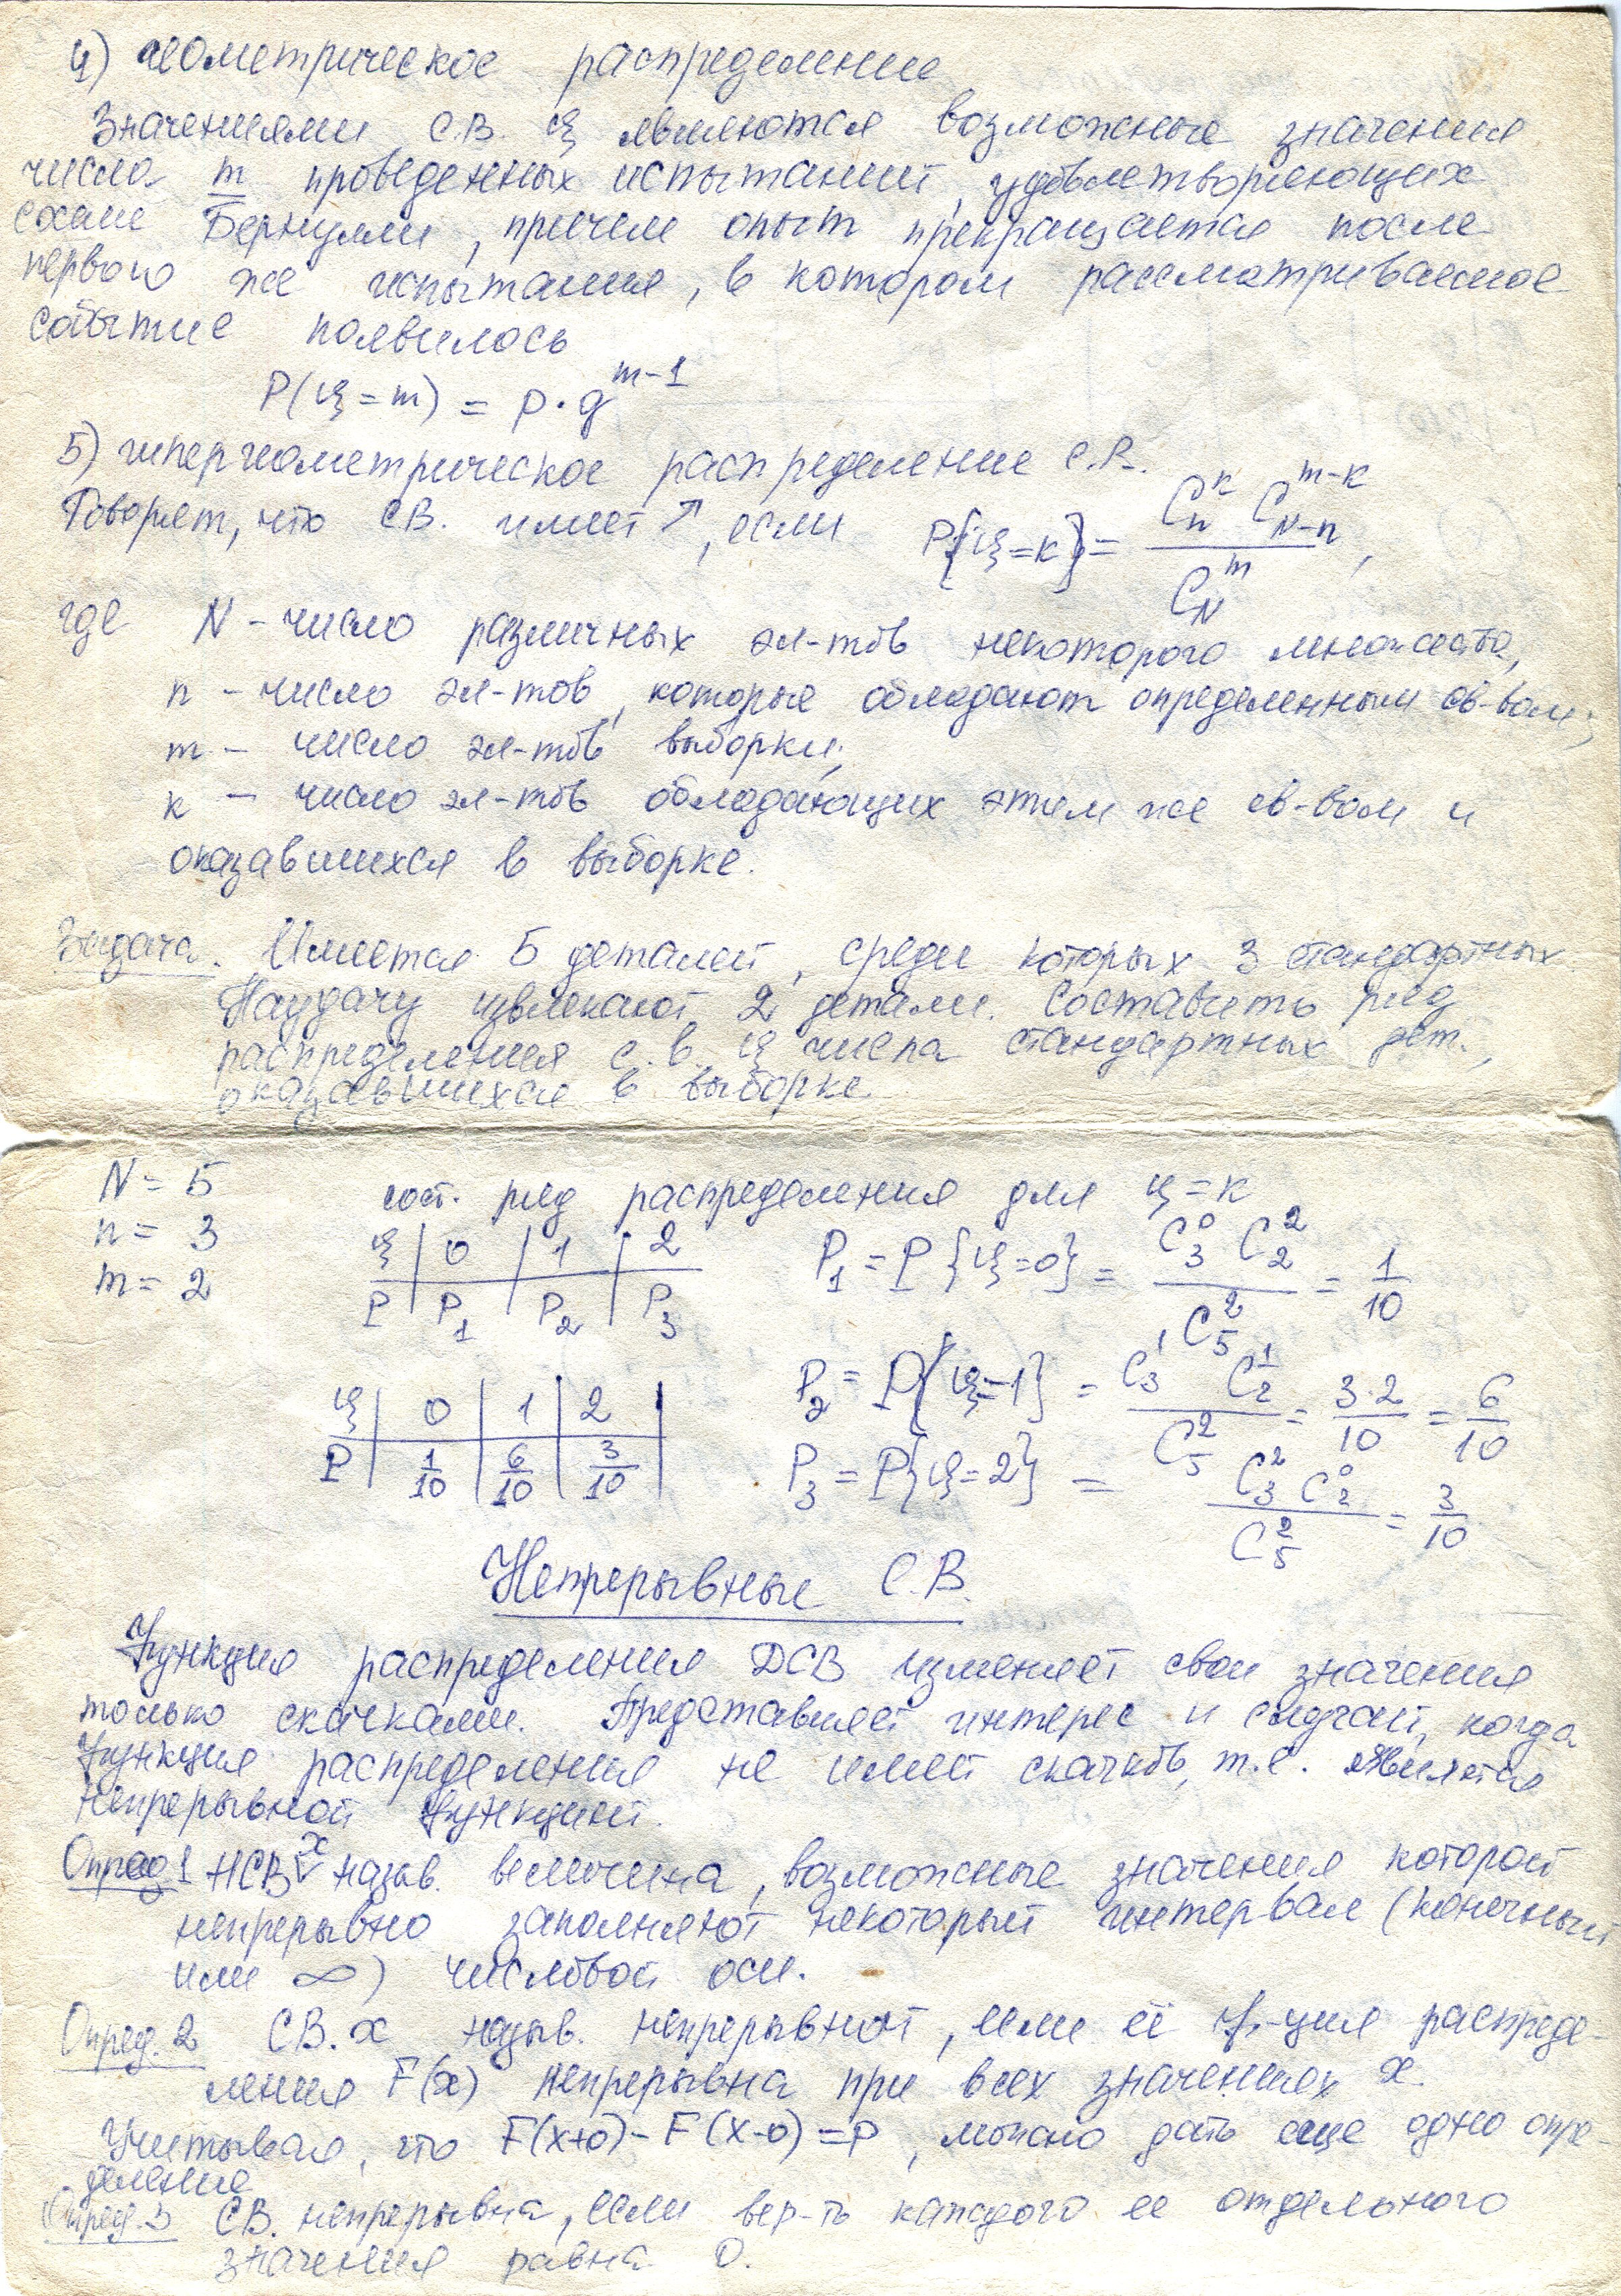 4) геометрическое распределение
Значениями С.В. ξ являются возможные значения
числа m проведенных испытаний, удовлетворяющих
схеме Бернулли, причем опыт прекращается после
первого же испытания, в котором рассматриваемое
событие появилось
P(ξ=m) = p·q^{m-1}
5) гипергеометрическое распределение С.В.
Говорят, что СВ. имеет ↗, если P{ξ=k} = \frac{C_n^k C_{N-n}^{m-k}}{C_N^m},
где N - число различных эл-тов некоторого множества,
n - число эл-тов, которые обладают определенным св-вом;
m - число эл-тов выборки;
k - число эл-тов обладающих этим же св-вом и
оказавшихся в выборке.
Задача. Имеется 5 деталей, среди которых 3 стандартных.
Наудачу извлекают 2 детали. Составить ряд
распределения с.в. ξ числа стандартных дет.,
оказавшихся в выборке
N = 5
n = 3
m = 2
сост. ряд распределения для ξ = k
ξ | 0 | 1 | 2
P | P_1 | P_2 | P_3
P_1 = P{ξ=0} = \frac{C_3^0 C_2^2}{C_5^2} = \frac{1}{10}
P_2 = P{ξ=1} = \frac{C_3^1 C_2^1}{C_5^2} = \frac{3·2}{10} = \frac{6}{10}
ξ | 0 | 1 | 2 |
P | \frac{1}{10} | \frac{6}{10} | \frac{3}{10} |
P_3 = P{ξ=2} = \frac{C_3^2 C_2^0}{C_5^2} = \frac{3}{10}
Непрерывные С.В.
Функция распределения ДСВ изменяет свои значения
только скачками. Представляет интерес и случай, когда
функция распределения не имеет скачков, т.е. является
непрерывной функцией.
Опред 1 НСВ x назыв. величина, возможные значения которой
непрерывно заполняют некоторый интервал (конечный
или ∞) числовой оси.
Опред. 2 СВ. x назыв. непрерывной, если её ф-ция распреде-
ления F(x) непрерывна при всех значениях x.
Учитывая, что F(x+0) - F(x-0) = P, можно дать еще одно опре-
деление
Опред. 3 СВ. непрерывна, если вер-ть каждого ее отдельного
значения равна 0.